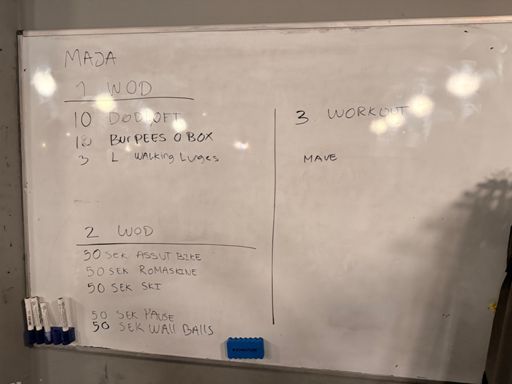 MAJA
1 WOD
10 DODLØFT
10 BURPEES O BOX
3 L WALKING LUNGES
2 WOD
50 SEK ASSUT BIKE
50 SEK ROMASKINE
50 SEK SKI
50 SEK PAUSE
50 SEK WALL BALLS
3 WORKOUT
MAVE